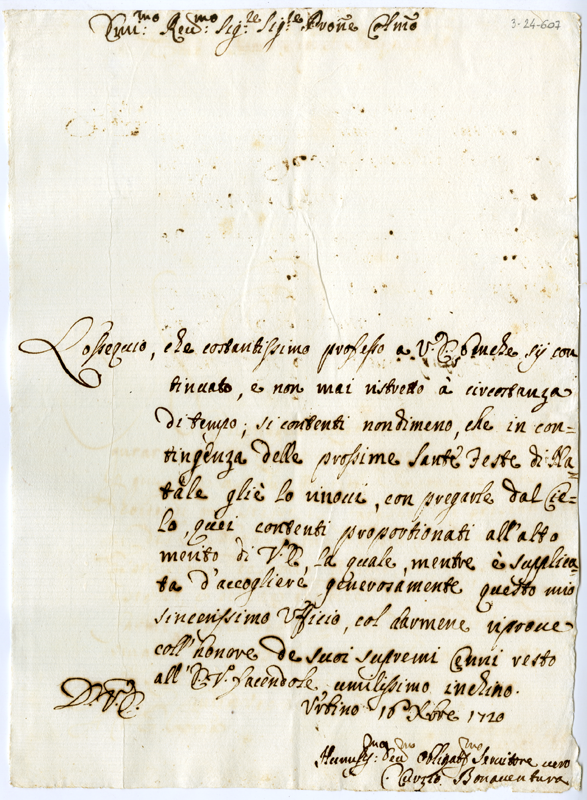 3-24-607
Em.mo Reu.mo Sig.re Sig.re Prone Colmo
L'ossequio, che costantissimo professo a V.E. benche sij con
tinuato, e non mai ristretto à circostanza
di tempo; si contenti nondimeno, che in con=
tingenza delle prossime Sante Feste di Na
tale gliè lo rinovi, con pregarle dal Cie=
lo, quei contenti proportionati all'alto
merito di V.E., la quale, mentre è supplica=
ta d'accogliere generosamente questo mio
sincerissimo Ufficio, col darmene riprove
coll'honore de suoi supremi Cenni resto
all'E.V. facendole umilissimo inchino.
D.V.E. Urbino 16 Xbre 1720
Humilss.mo Deu.mo Obligat.mo Servitore vero
Bonaventura